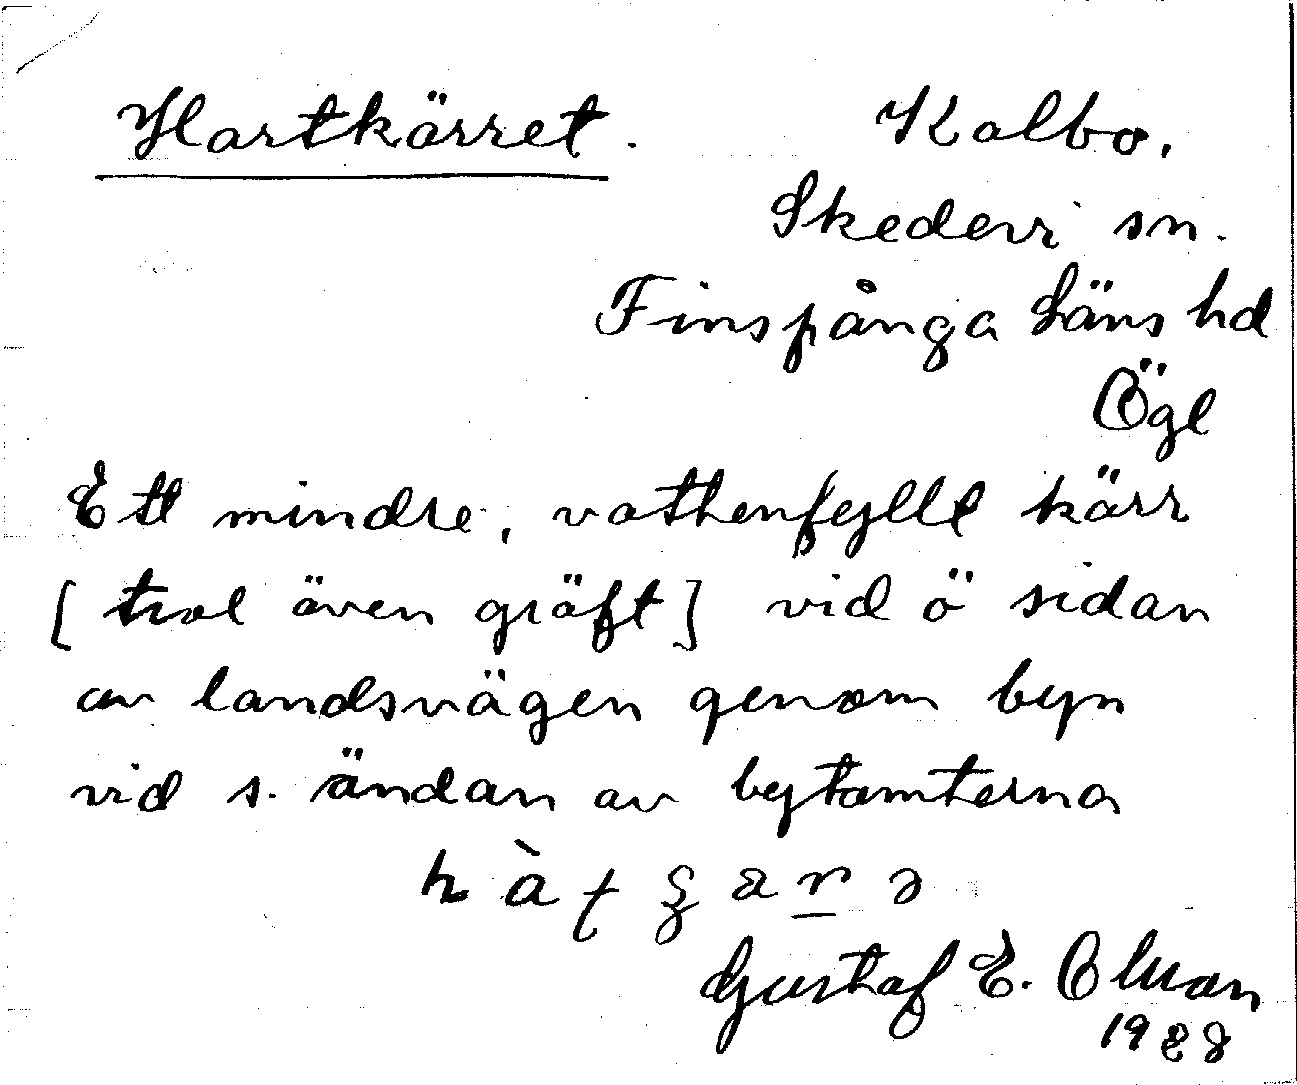 Hartkärret. Kolbo.
Skedevi sn.
Finspånga Läns hd
Ögl
Ett mindre, vattenfyllt kärr
[trol även gräft] vid ö sidan
av landsvägen genom byn
vid s. ändan av bytomterna
Gustaf E. Olsson
1928